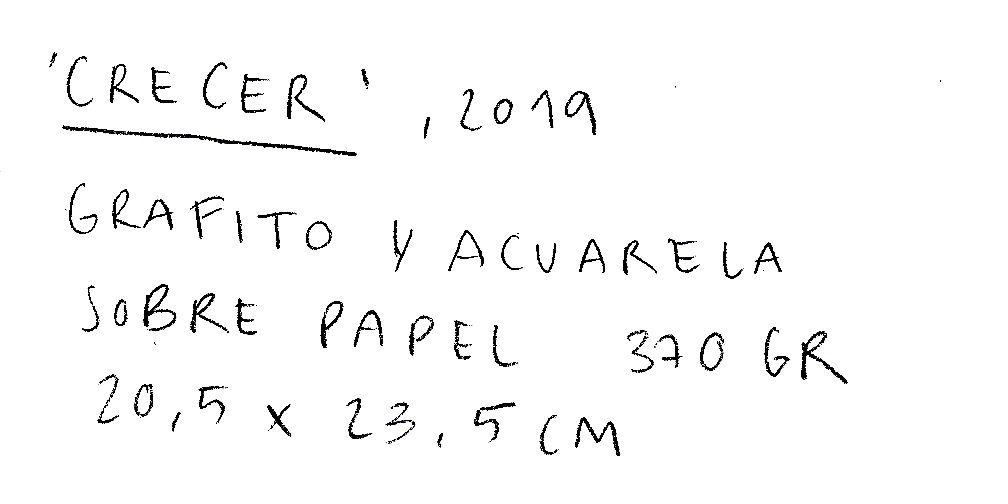 'CRECER', 2019
GRAFITO Y ACUARELA
SOBRE PAPEL 370 GR
20,5 x 23,5 CM